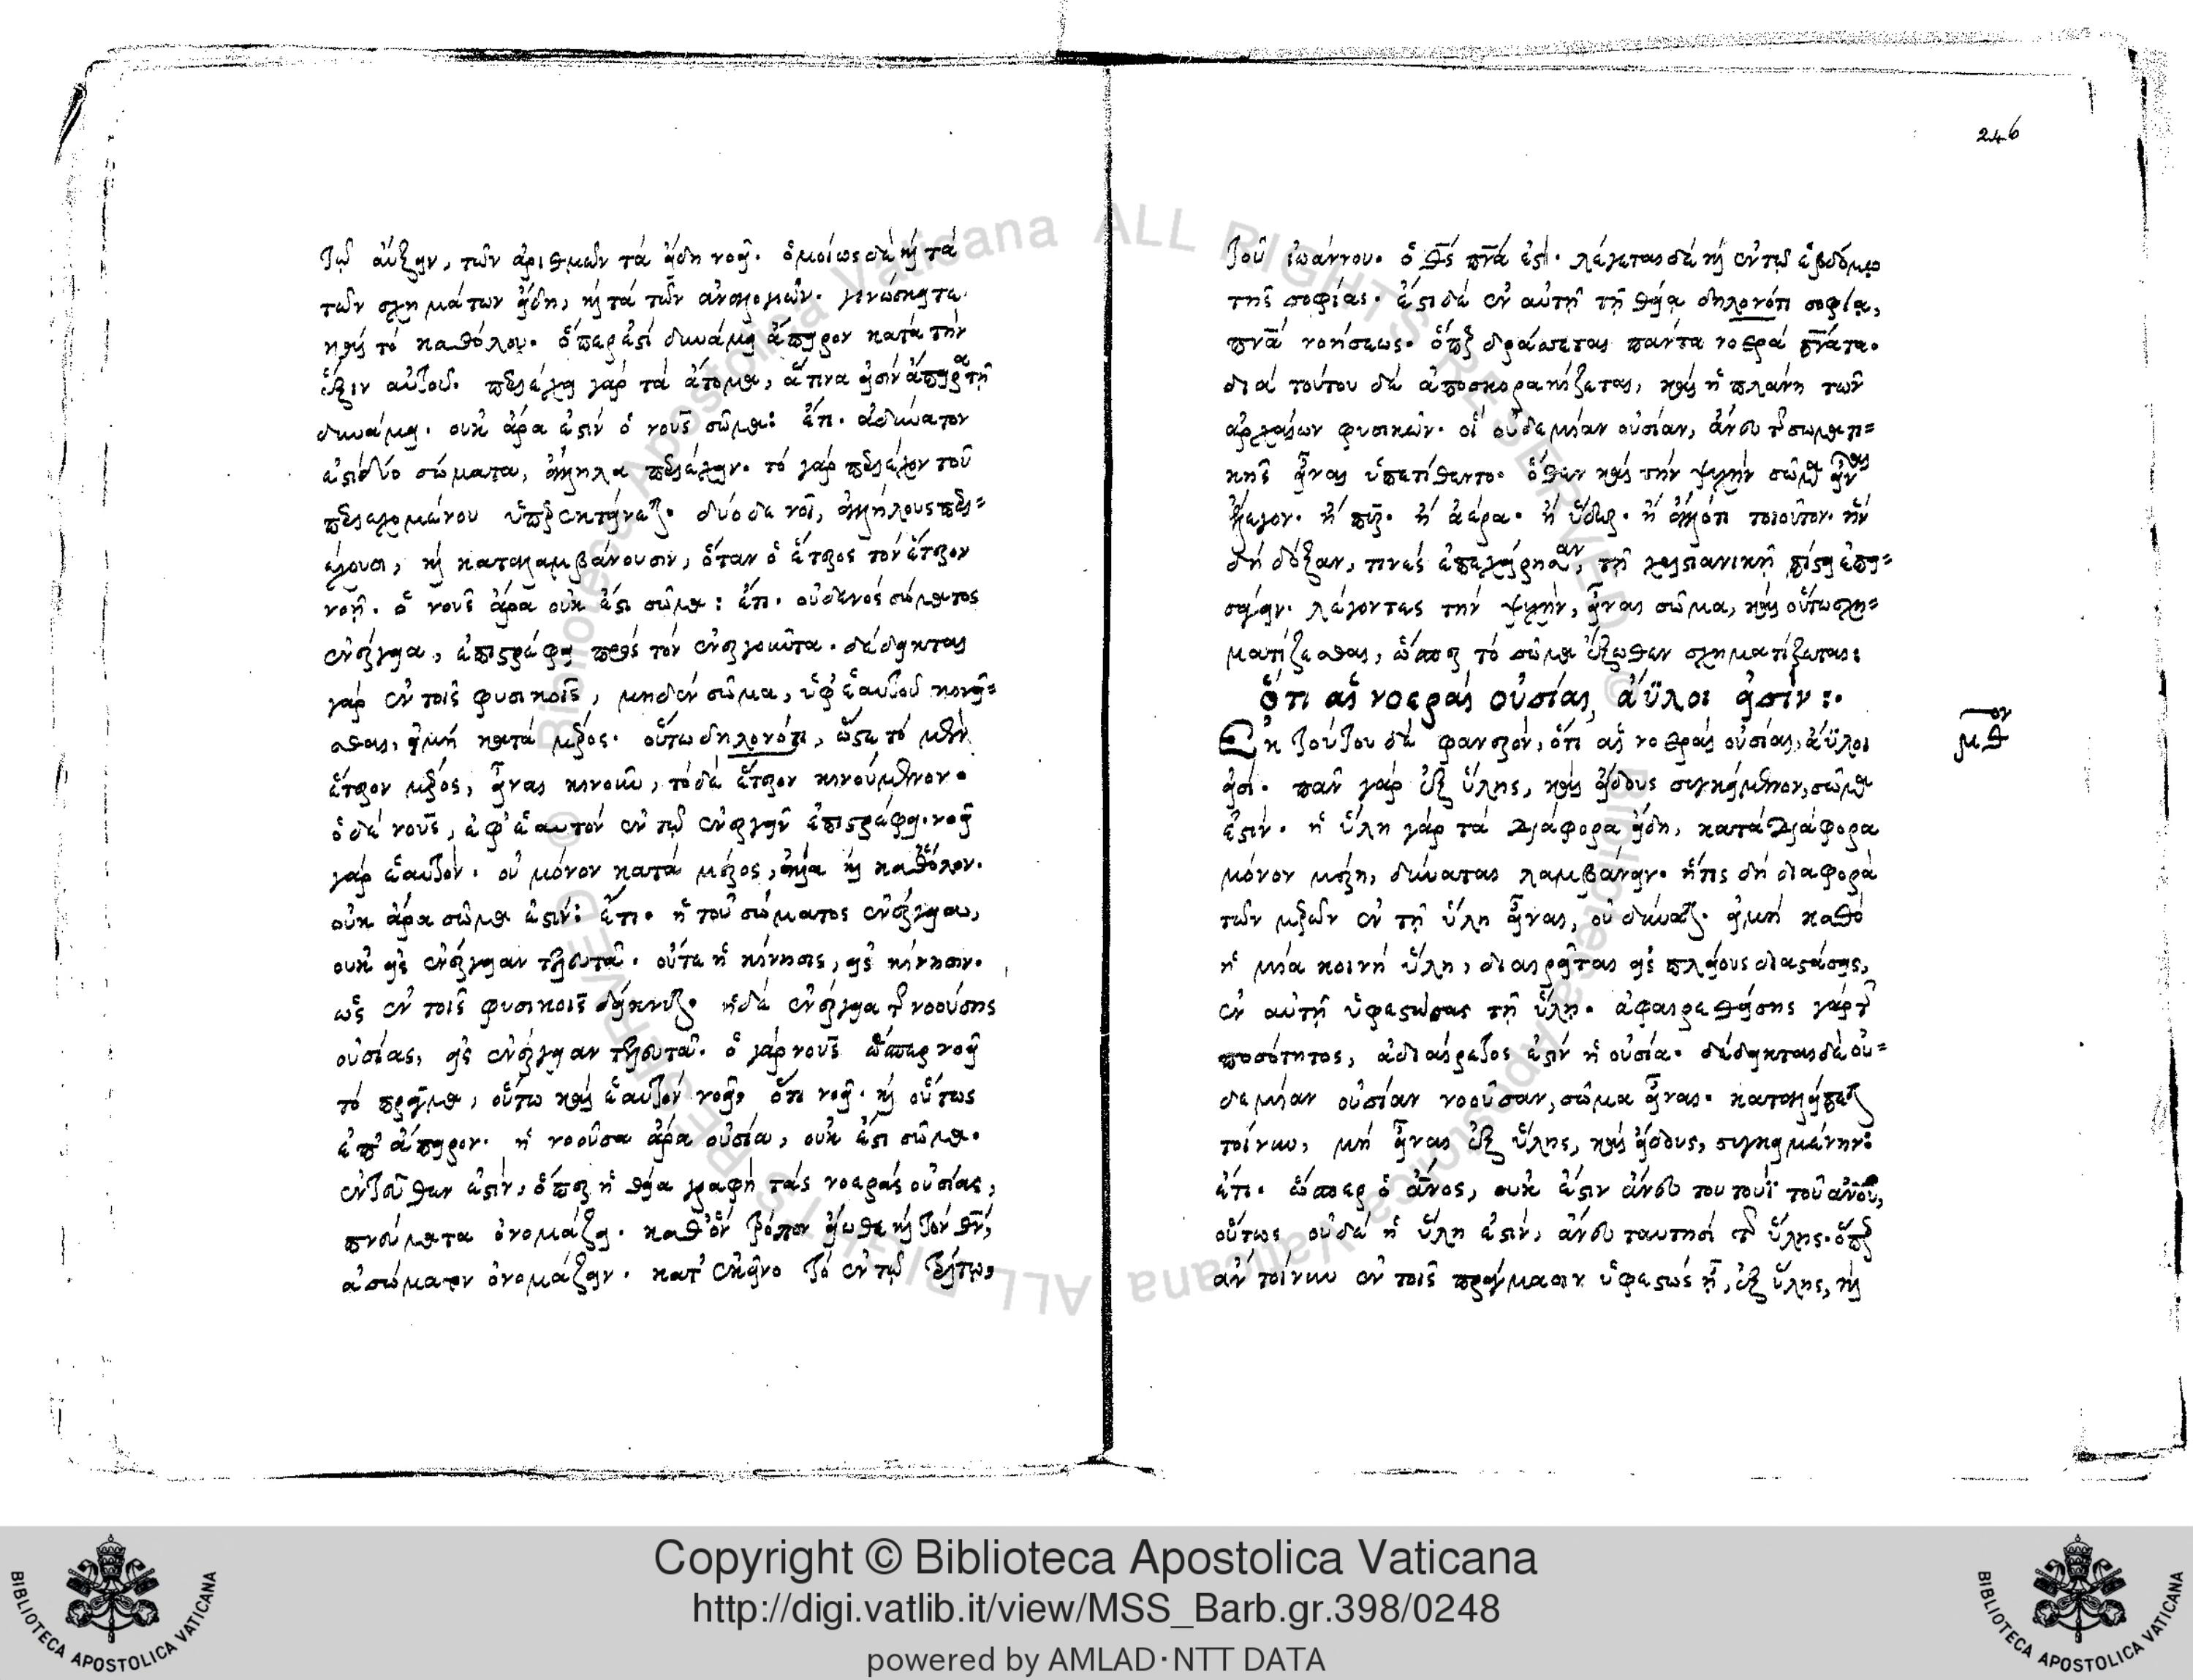 τῷ αὔξειν, τῶν ἀριθμῶν τὰ εἴδη νοεῖ. ὁμοίως δὲ καὶ τὰ
τῶν σχημάτων εἴδη, καὶ τὰ τῶν ἀναλογιῶν. γινώσκει τε
καὶ τὸ καθόλου. ὅπερ ἐστὶ δυνάμει ἄπειρον κατὰ τὴν
ἕξιν αὐτοῦ. περιέχει γὰρ τὰ ἄτομα, ἅτινα εἰσὶν ἄπειρα τῇ
δυνάμει. οὐκ ἄρα ἐστὶν ὁ νοῦς σῶμα: ἔτι. ἀδύνατον
ἐστὶ δύο σώματα, ἄλληλα περιέχειν. τὸ γὰρ περιέχον τοῦ
περιεχομένου ὑπερεκτείνεται. δύο δὲ νοῖ, ἀλλήλους περι=
έχουσι, καὶ καταλαμβάνουσιν, ὅταν ὁ ἕτερος τὸν ἕτερον
νοῇ. ὁ νοῦς ἄρα οὐκ ἔστι σῶμα: ἔτι. οὐδενὸς σώματος
ἐνέργεια, ἐπιστρέφει πρὸς τὸν ἐνεργοῦντα. δέδεικται
γὰρ ἐν τοῖς φυσικοῖς, μηδὲν σῶμα, ὑφ' ἑαυτοῦ κινεῖ=
σθαι, εἰ μὴ κατὰ μέρος. οὕτω δηλονότι, ὥστε τὸ μὲν
ἕτερον μέρος, εἶναι κινοῦν, τὸ δὲ ἕτερον κινούμενον.
ὁ δὲ νοῦς, ἐφ' ἑαυτὸν ἐν τῷ ἐνεργεῖν ἐπιστρέφει. νοεῖ
γὰρ ἑαυτόν. οὐ μόνον κατὰ μέρος, ἀλλὰ καὶ καθόλον.
οὐκ ἄρα σῶμα ἐστίν: ἔτι. ἡ τοῦ σώματος ἐνέργεια,
οὐκ εἰς ἐνέργειαν τελευτᾷ. οὔτε ἡ κίνησις, εἰς κίνησιν.
ὡς ἐν τοῖς φυσικοῖς δείκνυται. ἡ δὲ ἐνέργεια τῆς νοούσης
οὐσίας, εἰς ἐνέργειαν τελευτᾷ. ὁ γὰρ νοῦς ὥσπερ νοεῖ
τὸ πρᾶγμα, οὕτω καὶ ἑαυτὸν νοεῖ, ὅτι νοεῖ. καὶ οὕτως
ἐπ' ἄπειρον. ἡ νοοῦσα ἄρα οὐσία, οὐκ ἔστι σῶμα.
ἐντεῦθεν ἐστίν, ὅπερ ἡ θεία γραφὴ τὰς νοερὰς οὐσίας,
πνεύματα ὀνομάζει. καθ' ὃν τρόπον εἴωθε καὶ τὸν θν,
ἀσώματον ὀνομάζειν. κατ' ἐκεῖνο τὸ ἐν τῷ τετάρτῳ
246
τοῦ ἰωάννου. ὁ θς πνα ἐστί. λέγεται δὲ καὶ ἐν τῷ ἑβδόμῳ
τῆς σοφίας. ἔστι δὲ ἐν αὐτῇ τῇ θείᾳ δηλονότι σοφίᾳ,
πνα νοήσεως. ὅπερ δράσσεται πάντα νοερὰ πνατα.
διὰ τούτου δὲ ἀποσκορακίζεται, καὶ ἡ πλάνη τῶν
ἀρχαίων φυσικῶν. οἳ οὐδεμίαν οὐσίαν, ἄνευ τῆς σωματι=
κῆς εἶναι ὑπετίθεντο. ὅθεν καὶ τὴν ψυχὴν σῶμα εἶναι
ἔλεγον. ἢ πῦρ. ἢ ἀέρα. ἢ ὕδωρ. ἢ ἄλλό τι τοιοῦτον. ἣν
δὴ δόξαν, τινὲς ἐπεχείρησαν, τῇ χριστιανικῇ πίστει ἐπει=
σάγειν. λέγοντες τὴν ψυχὴν, εἶναι σῶμα, καὶ οὕτω σχη=
ματίζεσθαι, ὥσπερ τὸ σῶμα ἔξωθεν σχηματίζεται:
Ὅτι αἱ νοεραὶ οὐσίαι, ἄϋλοι εἰσίν:.
Ἐκ τούτου δὲ φανερὸν, ὅτι αἱ νοεραὶ οὐσίαι, ἄϋλοι
εἰσί. πᾶν γὰρ ἐξ ὕλης, καὶ εἴδους συγκείμενον, σῶμα
ἐστίν. ἡ ὕλη γὰρ τὰ διάφορα εἴδη, κατὰ διάφορα
μόνον μέρη, δύναται λαμβάνειν. ἥτις δὴ διαφορὰ
τῶν μερῶν ἐν τῇ ὕλῃ εἶναι, οὐ δύναται. εἰ μὴ καθὸ
ἡ μία κοινὴ ὕλη, διαιρεῖται εἰς πλείους διαστάσεις,
ἐν αὐτῇ ὑφεστώσας τῇ ὕλῃ. ἀφαιρεθείσης γὰρ τῆς
ποσότητος, ἀδιαίρετος ἐστὶν ἡ οὐσία. δέδεικται δὲ οὐ=
δεμίαν οὐσίαν νοοῦσαν, σῶμα εἶναι. καταλείπεται
τοίνυν, μὴ εἶναι ἐξ ὕλης, καὶ εἴδους, συγκειμένην:
ἔτι. ὥσπερ ὁ ἄνος, οὐκ ἔστιν ἄνευ τουτουῒ τοῦ ἀνου,
οὕτως οὐδὲ ἡ ὕλη ἐστὶν, ἄνευ ταυτησὶ τῆς ὕλης. ὅπερ
ἂν τοίνυν ἐν τοῖς πράγμασιν ὑφεστὼς ᾖ, ἐξ ὕλης, καὶ
μθον
Copyright © Biblioteca Apostolica Vaticana
http://digi.vatlib.it/view/MSS_Barb.gr.398/0248
powered by AMLAD·NTT DATA
BIBLIOTECA APOSTOLICA VATICANA
BIBLIOTECA APOSTOLICA VATICANA